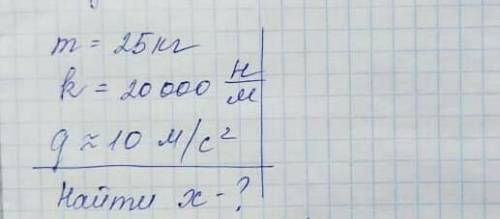 m = 25кг
k = 20000 Н/м
g ≈ 10 м/с²
Найти x - ?